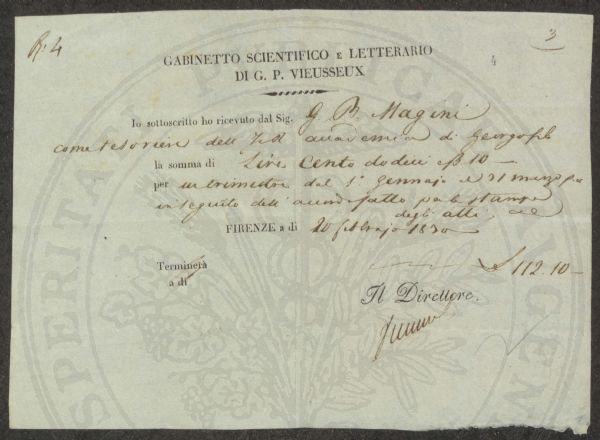 R. 4
3
4
GABINETTO SCIENTIFICO E LETTERARIO
DI G. P. VIEUSSEUX
Io sottoscritto ho ricevuto dal Sig. G B. Magini
come tesoriere dell' accademia di Georgofili
la somma di Lire Cento dodici e 10 —
per un trimestre dal 1° Gennajo al 31 marzo
in seguito dell' accordo fatto per la stampa
degli atti
FIRENZE a di 20 febbrajo 1830
Terminerà
a di
£ 112. 10 —
Il Direttore.
PROSPERITATI PUBLICAE